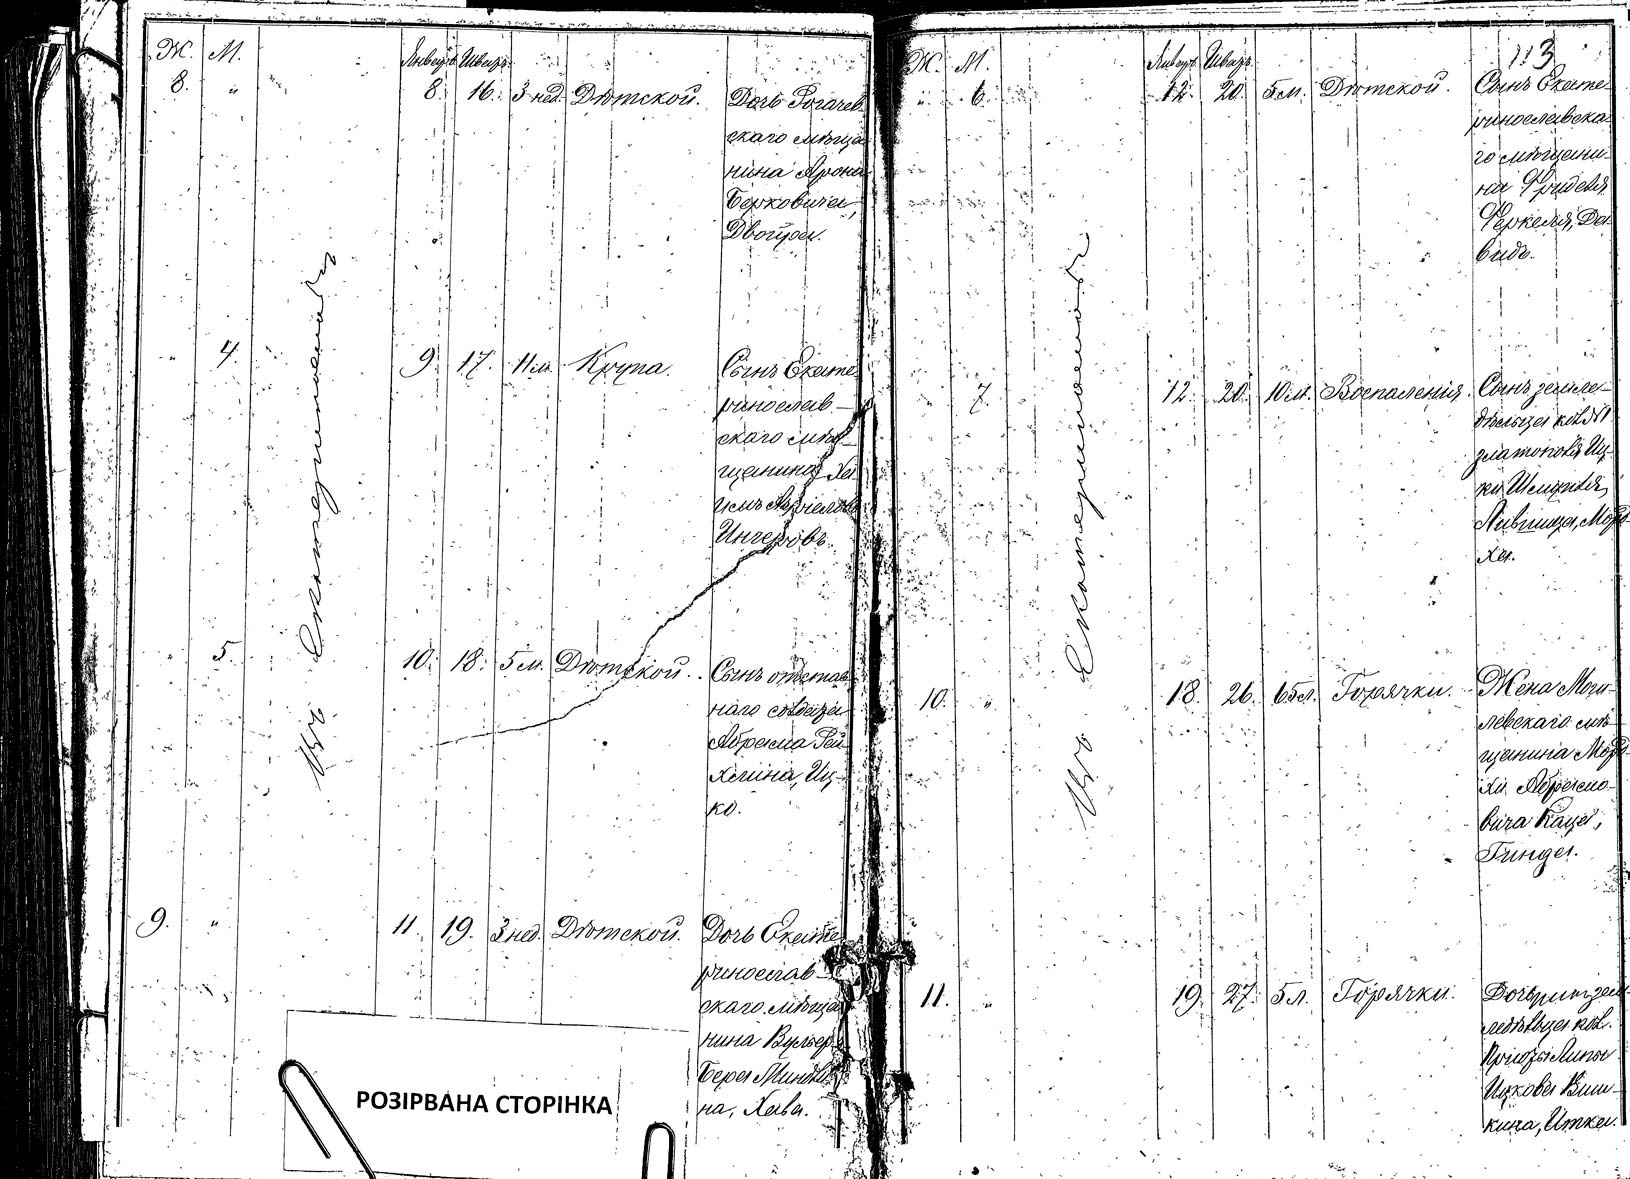 Ж. М. Январь Шватъ
8. " 8. 16. 3 нед. Дѣтской. Дочь Рогачев
скаго мѣща
нина Арона
Берковича,
Двойра.
" 4. 9. 17. 11 м. Крупа. Сынъ Екате
ринослав-
скаго мѣ-
щанина Ха
имъ
Ингеровъ.
" 5. 10. 18. 5 м. Дѣтской. Сынъ отстав
наго солдата
Абрама Рей
хлина, Иц-
ко.
9. " 11. 19. 3 нед. Дѣтской. Дочь Екате
ринослав-
скаго мѣща
нина
Бера
на, Хава.
Въ Екатеринославѣ
РОЗІРВАНА СТОРІНКА
113
Ж. М. Январь Шватъ
" 6. 12. 20. 5 м. Дѣтской. Сынъ Екате
ринославска
го мѣщани-
на Фриделя
Феркеля, Да
видъ.
" 7. 12. 20. 10 м. Воспаленія. Сынъ земле-
дѣльца кол. №1
Иц-
ки Шмуиля
Лившица, Мордо
ха.
10. " 18. 26. 65 л. Горячки. Жена Моги-
левскаго мѣ
щанина Мордо
хи Абрамо-
вича Каца,
Гинда.
11. " 19. 27. 5 л. Горячки. Дочь зем
ледѣльца кол.
Ицкова
кина, Итка.
Въ Екатеринославѣ